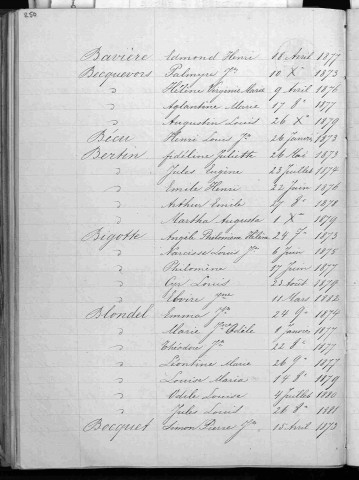 250
Bavière Edmond Henri 18 Avril 1877
Becquevors Palmyre Jh 10 Xe 1873
" Hélène Virginie Marie 9 Avril 1876
" Aglantine Marie 17 8e 1877
" Augustin Louis 26 Xe 1879
Bécu Henri Louis Jh 26 Janvier 1873
Bertin fidéline Juliette 26 Mai 1873
" Jules Eugène 23 Juillet 1874
" Emile Henri 22 Juin 1876
" Arthur Emile 27 8e 1878
" Marthe Augusta 1 Xe 1879
Bigotte Angèle Philomène Hélène 24 7e 1873
" Narcisse Louis Jh 6 Juin 1875
" Philomène 17 Juin 1877
" Louis 23 Août 1879
" 11 Mars 1882
Blondel Emma Jh 24 9e 1874
" Marie Jh Adèle 8 Janvier 1877
" Théodore Jh 22 8e 1877
" Léontine Marie 26 9e 1877
" Louise Maria 14 8e 1879
" Odile Louise 4 Juillet 1880
" Jules Louis 26 8e 1881
Bocquet Simon Pierre Jh 15 Avril 1873